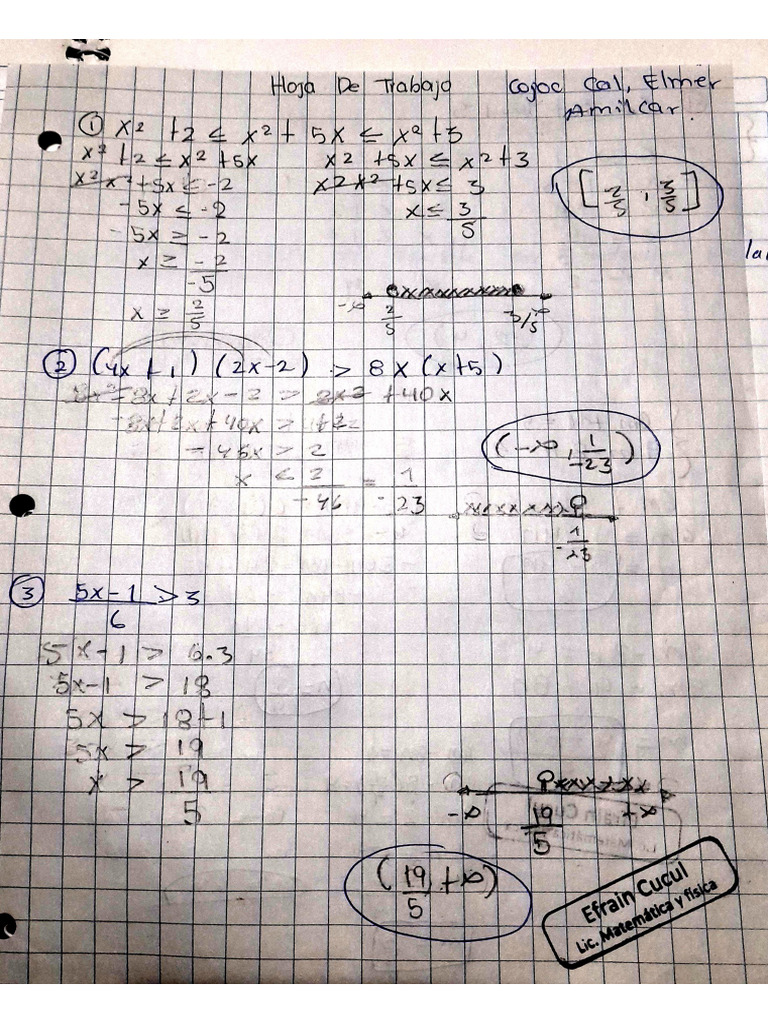 Hoja De Trabajo Cojoc Cal, Elmer
Amilcar.
① x² + 2 ≤ x² + 5x ≤ x² + 3
x² + 2 ≤ x² + 5x
x² - x² + 5x ≤ -2
- 5x ≤ -2
- 5x ≥ -2
x ≥ -2/-5
x ≥ 2/5
x² + 5x ≤ x² + 3
x² x² + 5x ≤ 3
x ≤ 3/5
[2/5, 3/5]
-∞ 2/5 3/5 ∞
② (4x + 1) (2x - 2) > 8x (x + 5)
- 8x + 2x - 2 > + 40x
x < 2/-46 = 1/-23
(-∞, 1/-23)
1/-23
③ 5x - 1/6 > 3
5x - 1 > 6.3
5x - 1 > 18
5x > 18 + 1
5x > 19
x > 19/5
-∞ 19/5 +∞
(19/5 +∞)
Efrain Cucul
Lic. Matemática y física